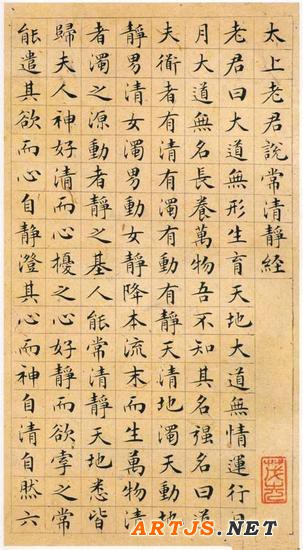 太上老君說常清靜經
老君曰大道無形生育天地大道無情運行日
月大道無名長養萬物吾不知其名强名曰道
夫衜者有清有濁有動有靜天清地濁天動地
靜男清女濁男動女靜降本流末而生萬物清
者濁之源動者靜之基人能常清靜天地悉皆
歸夫人神好清而心擾之心好靜而欲牽之常
能遣其欲而心自靜澄其心而神自清自然六
ARTJS.NET